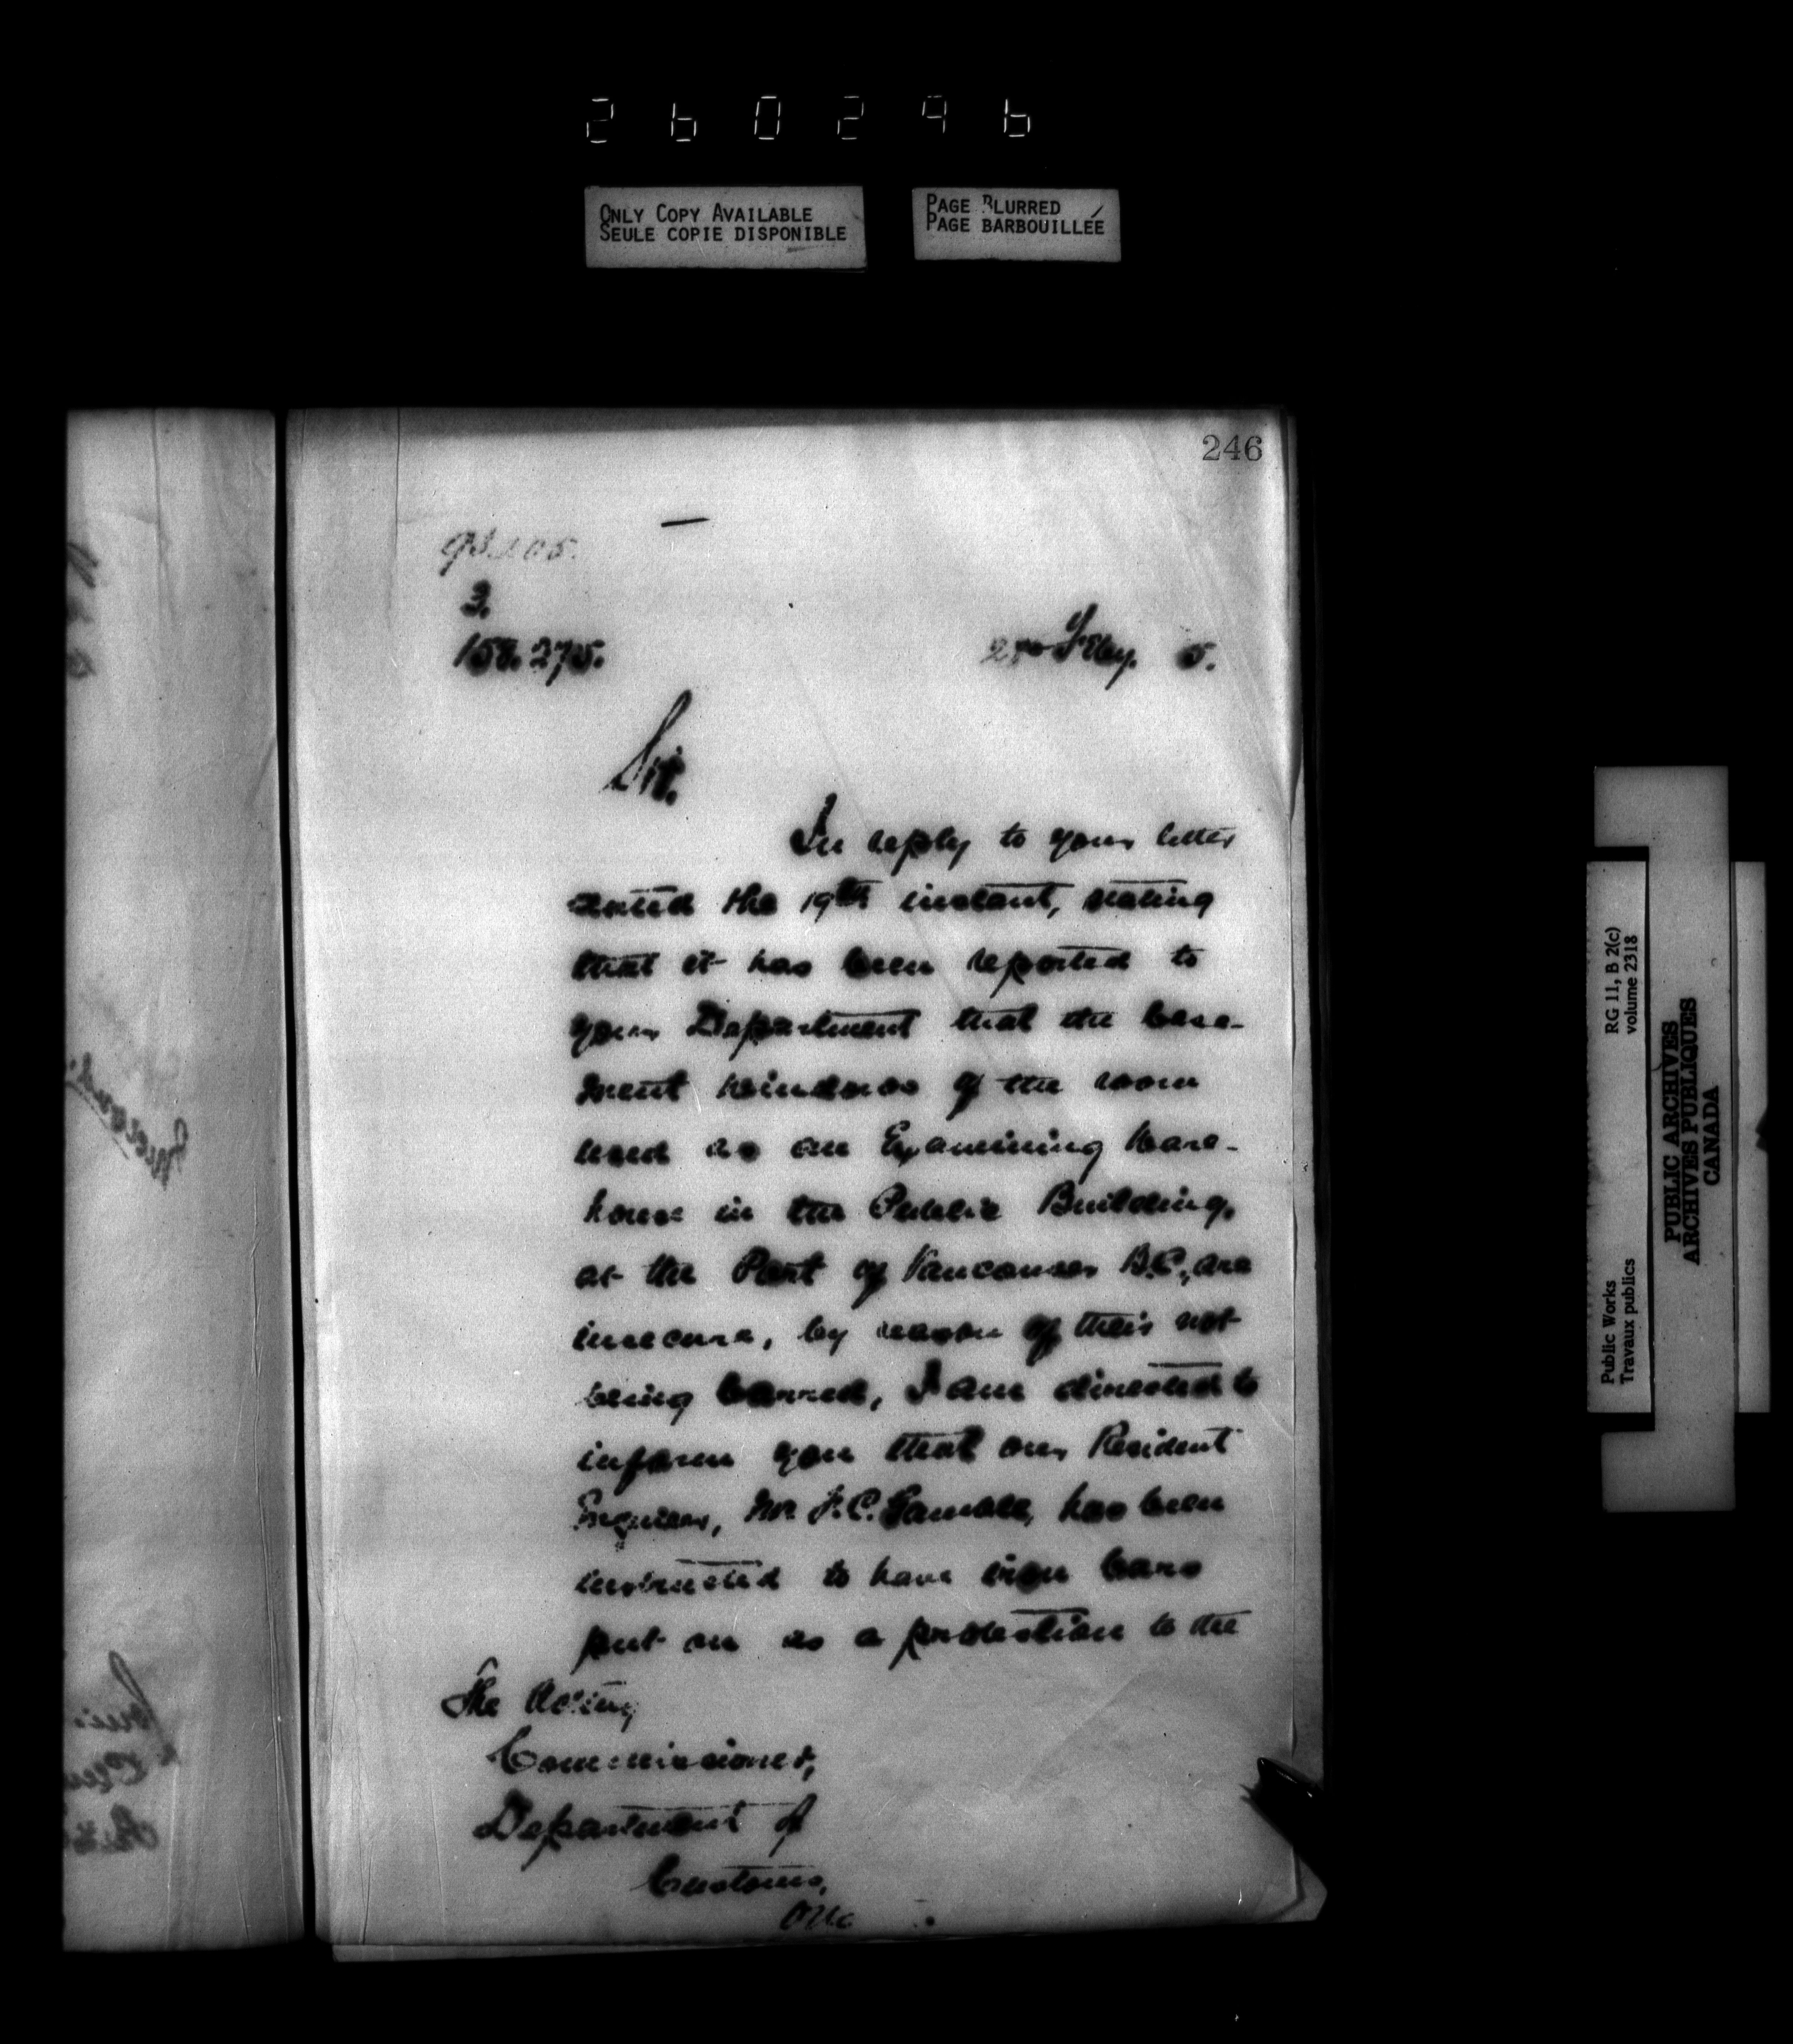 260246
ONLY COPY AVAILABLE
SEULE COPIE DISPONIBLE
PAGE BLURRED
PAGE BARBOUILLÉE
246
3.
158.275.
Feby. 5.
Sir.
In reply to your letter
dated the 19th instant, stating
that it has been reported to
your Department that the base-
ment windows of the room
used as an Examining Ware-
house in the Public Building,
at the Port of Vancouver B.C., are
insecure, by reason of their not
being barred, I am directed to
inform you that our Resident
Engineer, Mr. F.C. Gamble, has been
instructed to have iron bars
put on as a protection to the
The Acting
Commissioner,
Department of
Customs,
RG 11, B 2(c)
volume 2318
Public Works
Travaux publics
PUBLIC ARCHIVES
ARCHIVES PUBLIQUES
CANADA